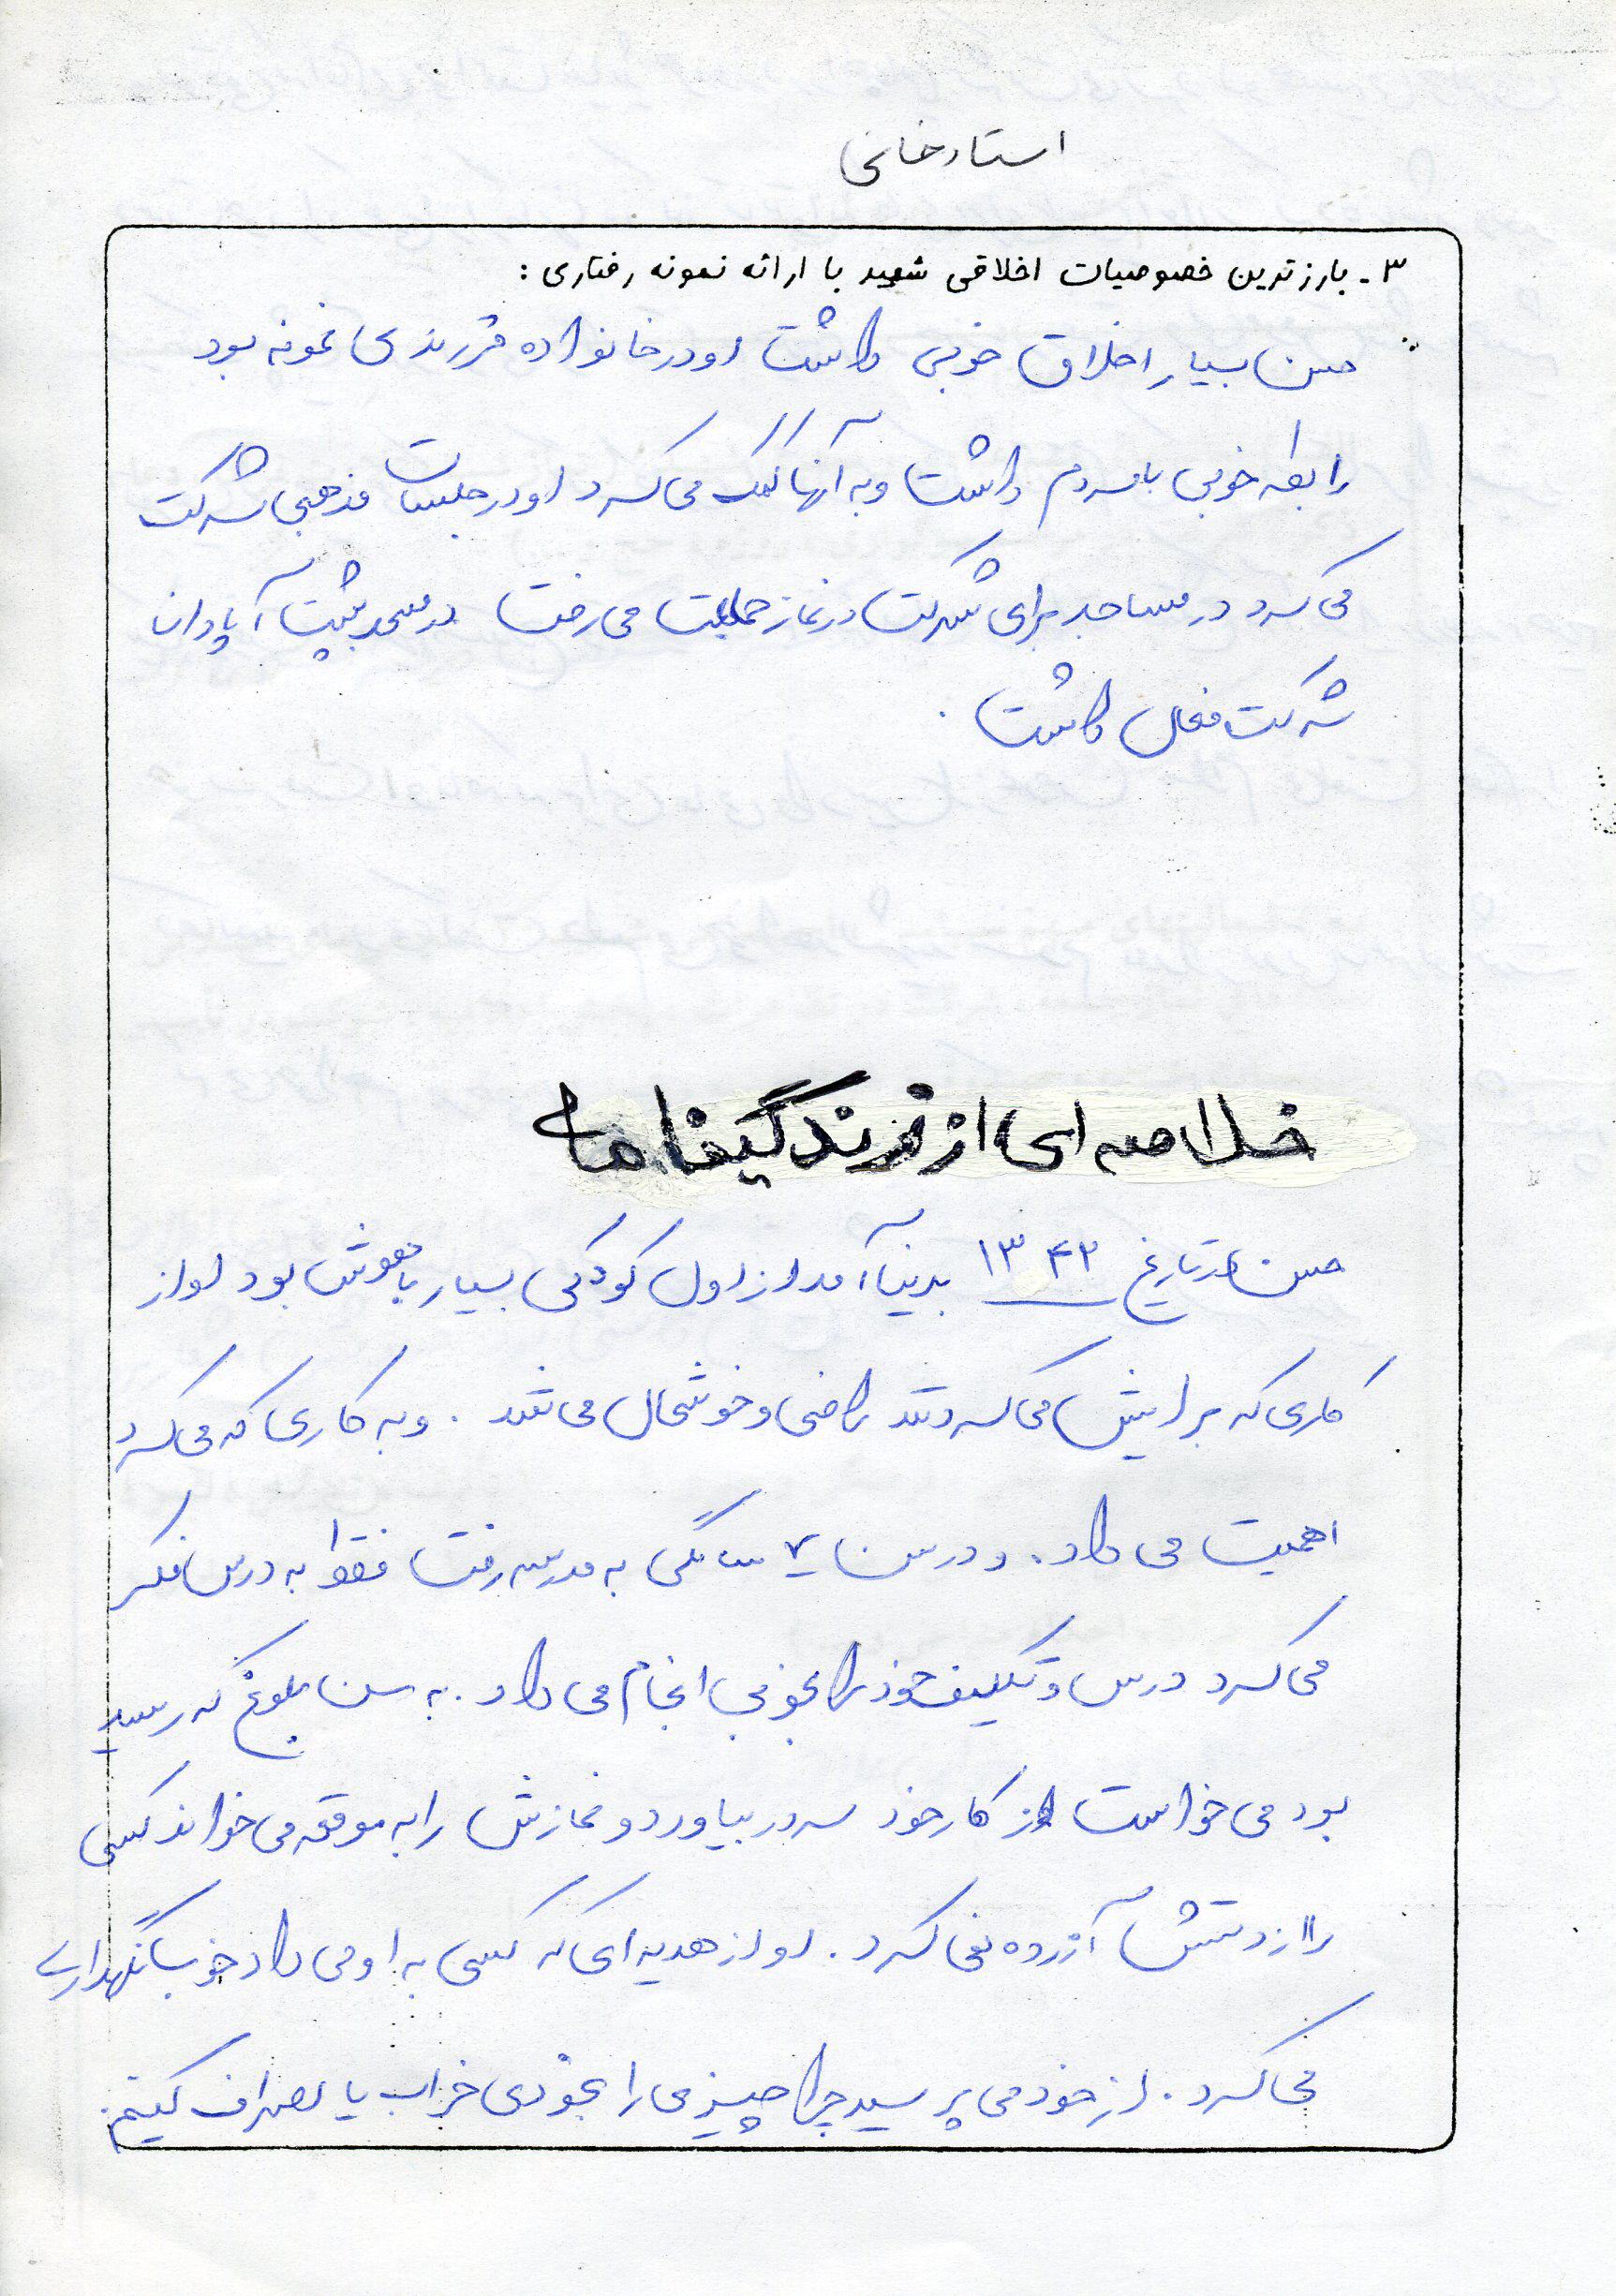 استادخانی
۳- بارزترین خصوصیات اخلاقی شهید با ارائه نمونه رفتاری:
حسن بسیار اخلاق خوبی داشت او در خانواده فرزندی نمونه بود
رابطه خوبی با مردم داشت و به آنها کمک می کرد او در جلسات مذهبی شرکت
می کرد در مساجد برای شرکت در نماز جماعت می رفت در مسجد پشت آپادان
شرکت فعال داشت.
خلاصه ای از زندگینامه
حسن در تاریخ ۱۳۴۲ بدنیا آمد از اول کودکی بسیار باهوش بود او از
کاری که برایش می کردند راضی و خوشحال می شد. و به کاری که می کرد
اهمیت می داد. و در سن ۷ سالگی به مدرسه رفت فقط به درس فکر
می کرد درس و تکلیف خود را بخوبی انجام می داد. به سن بلوغ که رسید
بود می خواست از کار خود سر در بیاورد و نمازش را به موقع می خواند کسی
را از دستش آزرده نمی کرد. او از هدیه ای که کسی به او می داد خوب نگهداری
می کرد. از خود می پرسید چرا چیزی را بخودی خراب یا اصراف کنیم.